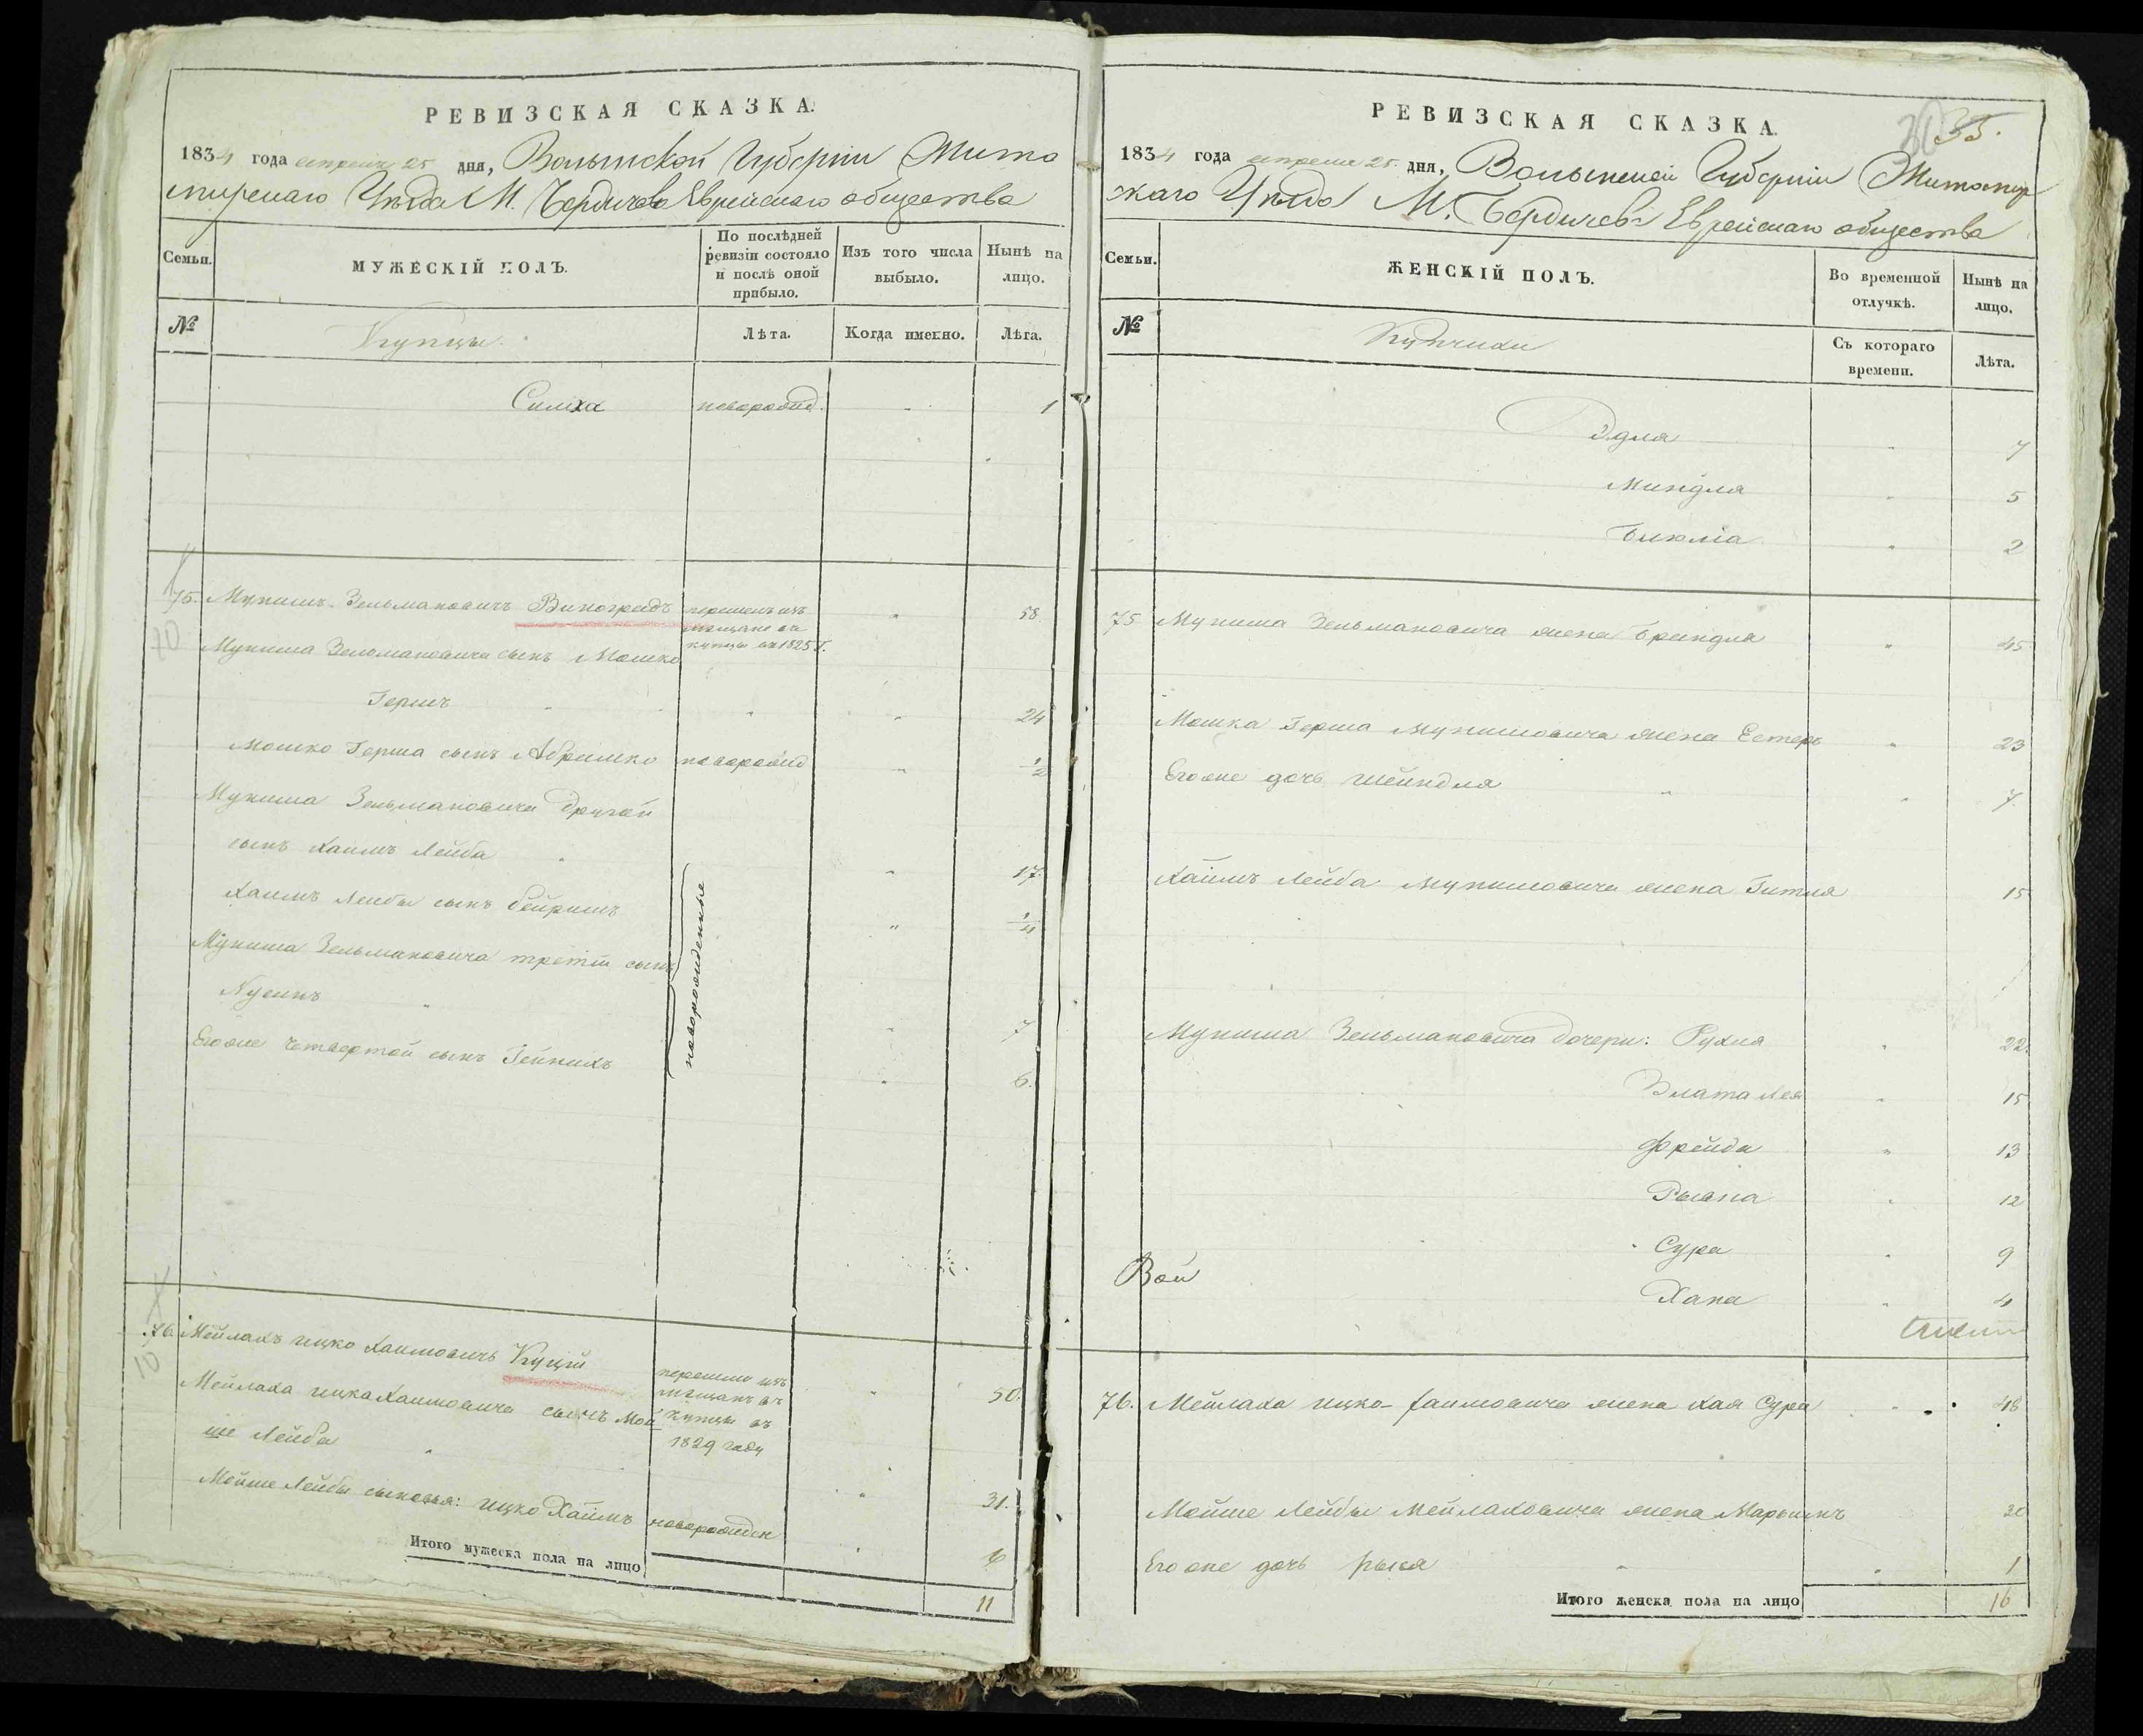 РЕВИЗСКАЯ СКАЗКА.
1834 года апреля 25 дня, Волынской Губерніи Жито
мирскаго Уѣзда М. Бердичева Еврейскаго общества
Семьи.
МУЖЕСКІЙ ПОЛЪ.
По послѣдней ревизіи состояло и послѣ оной прибыло.
Изъ того числа выбыло.
Нынѣ на лицо.
№
Купцы.
Лѣта.
Когда именно.
Лѣта.
Симха новорожд. 1
75. Мунишъ Зельмановичъ Виноградъ 58
перешелъ изъ
мещанъ въ
купцы въ 1825 г.
Муниша Зельмановича сынъ Мошко
Гершъ 24
Мошко Герша сынъ Абрамко новорожд 1/2
Муниша Зельмановича другой
сынъ Хаимъ Лейба 17
Хаимъ Лейбы сынъ Бейришъ 1/4
Муниша Зельмановича третiй сынъ
Нусинъ 7
Его же четвертой сынъ Гейнихъ 6.
новорожденные
76. Мейлахъ ицко Хаимовичъ Куцiй 50.
перешли изъ
мещанъ въ
купцы въ
1829 году
Мейлаха ицка Хаимовича сынъ Мой
ше Лейба 31.
Мойше Лейбы сыновья: ицко Хаимъ новорожден 6
Итого мужеска пола на лицо
11
РЕВИЗСКАЯ СКАЗКА.
35.
1834 года апреля 25. дня, Волынской Губерніи Житомир
скаго Уѣзда М. Бердичева Еврейскаго общества
Семьи.
ЖЕНСКІЙ ПОЛЪ.
Во временной отлучкѣ.
Нынѣ на лицо.
№
Купчихи
Съ котораго времени.
Лѣта.
Эдля 7
Миндля 5
2
75 Муниша Зельмановича жена Бриндля 45
Мошка Герша Мунишовича жена Естерь 23
Его же дочь Шейндля 7.
Хаимъ Лейба Мунишовича жена Гитля 15
Муниша Зельмановича дочери: Рухля 22.
Злата Лея 15
Фрейда 13
12
Сура 9
Хана 4
Вой
76. Мейлаха ицко Хаимовича жена Хая Сура 48
Мойше Лейбы Мейлаховича жена Марьимъ 30
Его же дочь 1
Итого женска пола на лицо
16